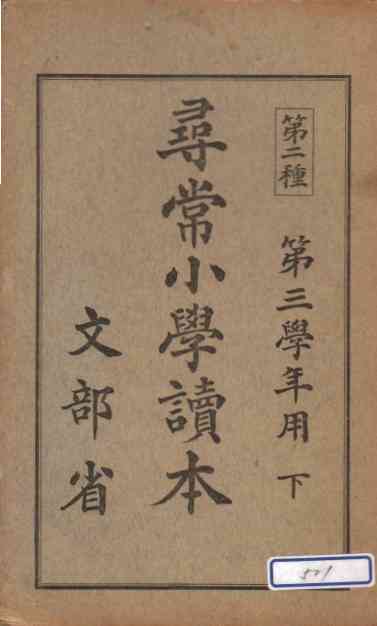 第二種
第三學年用 下
尋常小學讀本
文部省
521